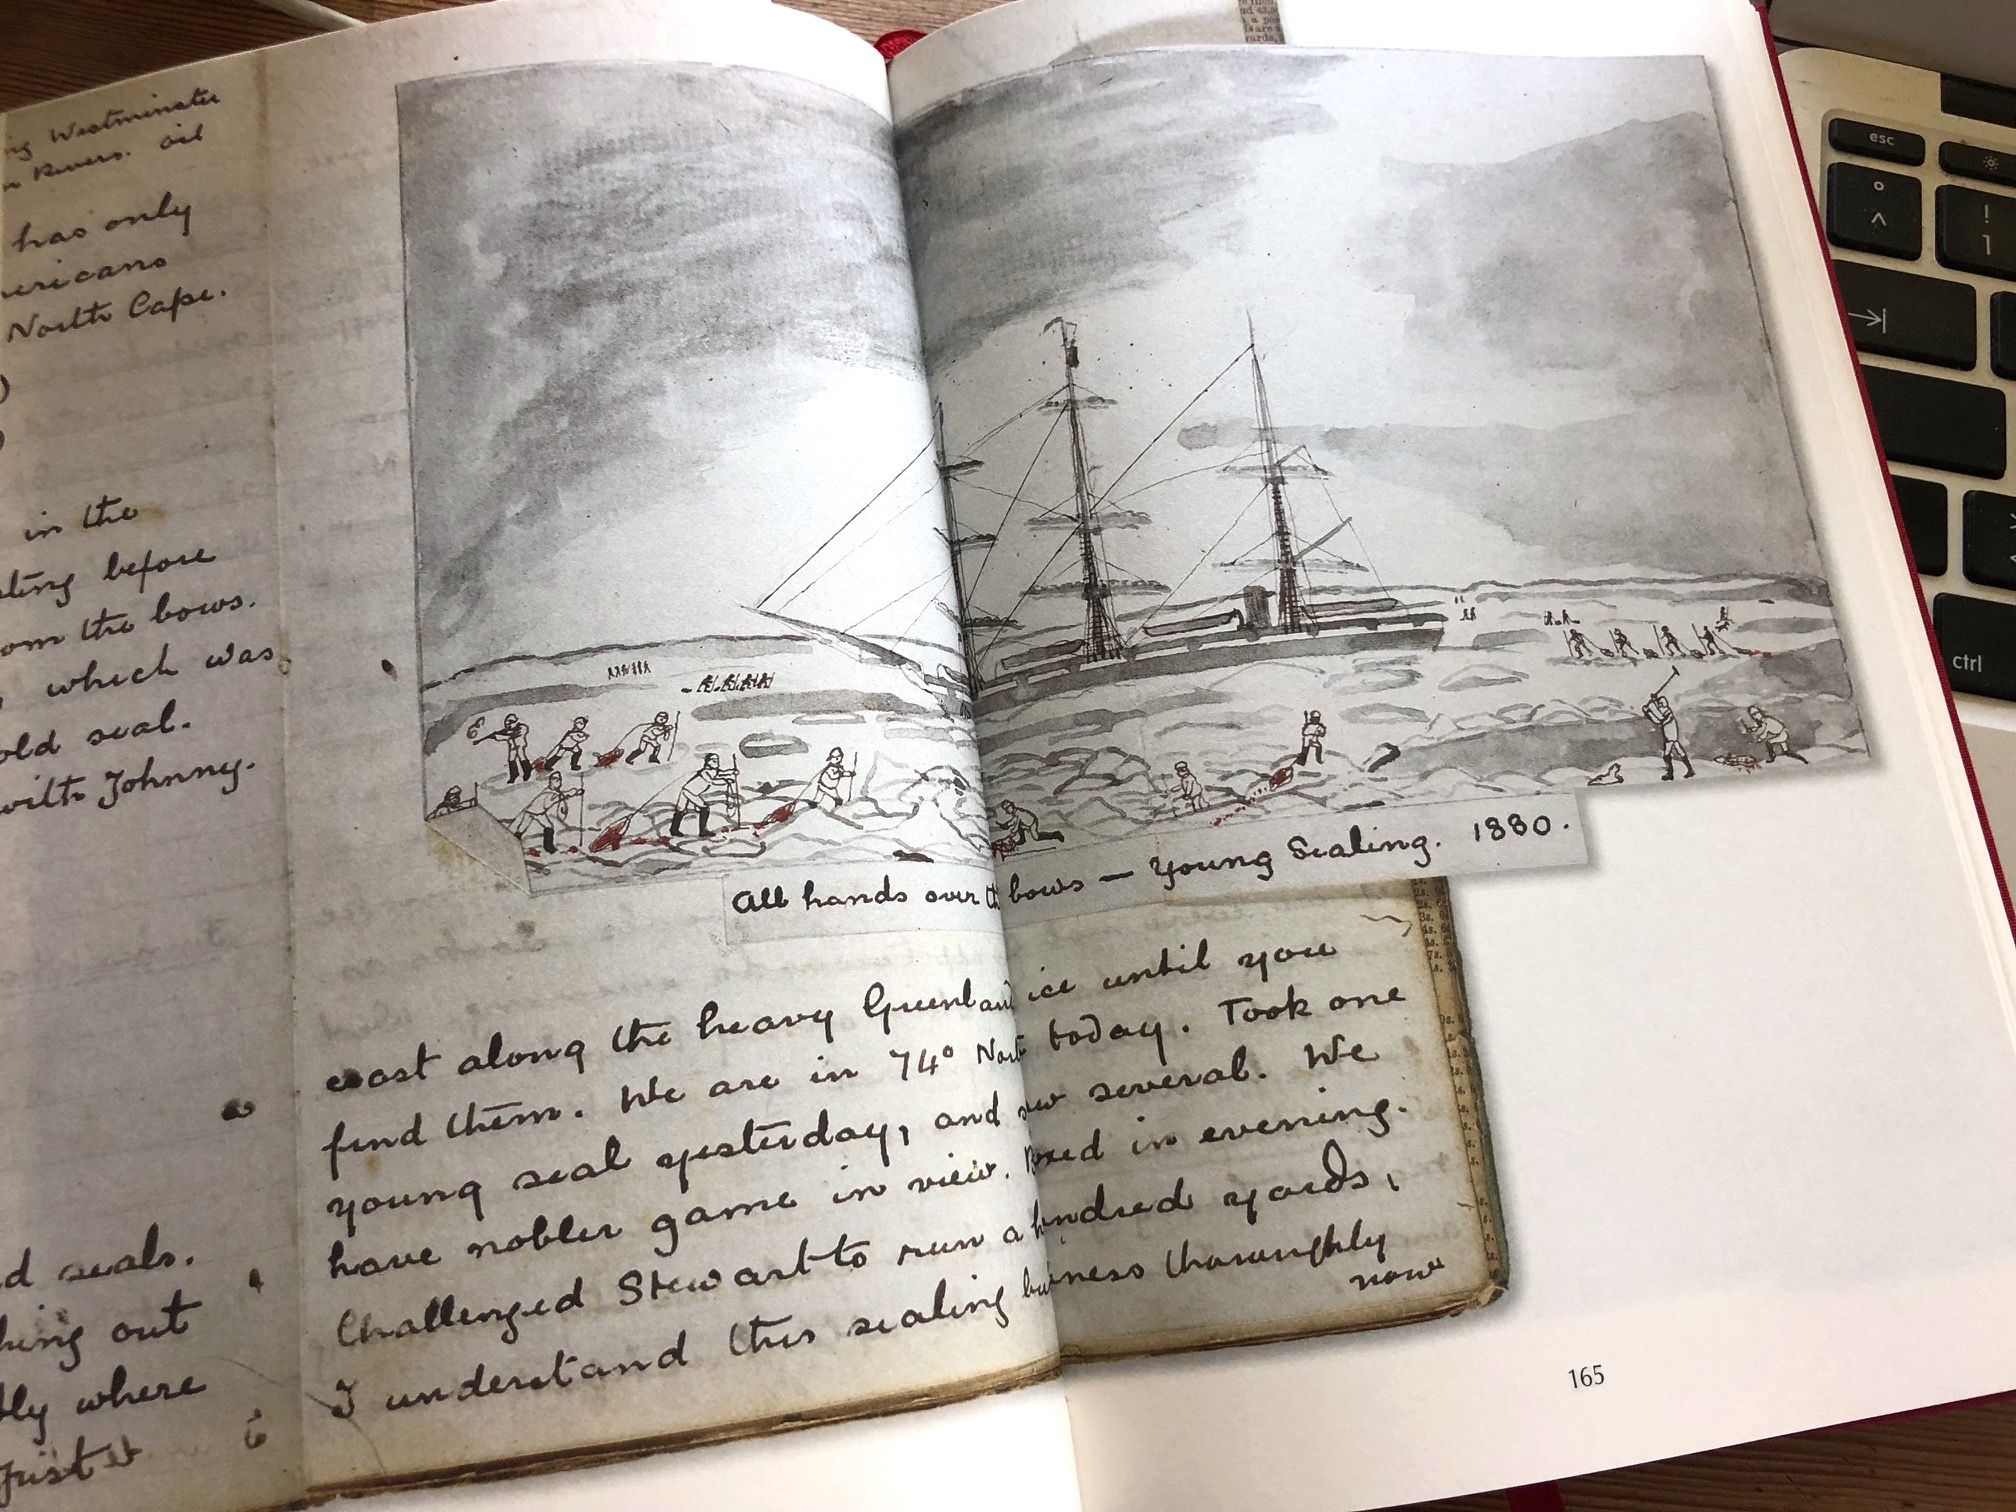 Westminster
Rivers. oil
has only
North Cape.
in the
before
the bows.
which was
old seal.
with Johnny.
seals.
out
where
Just
All hands over the bows — Young Sealing. 1880.
east along the heavy Greenland ice until you
find them. We are in 74° North today. Took one
young seal yesterday, and saw several. We
have nobler game in view. Boxed in evening.
Challenged Stewart to run a hundred yards,
I understand this sealing business thoroughly
now
165
esc
°
^
!
1
ctrl